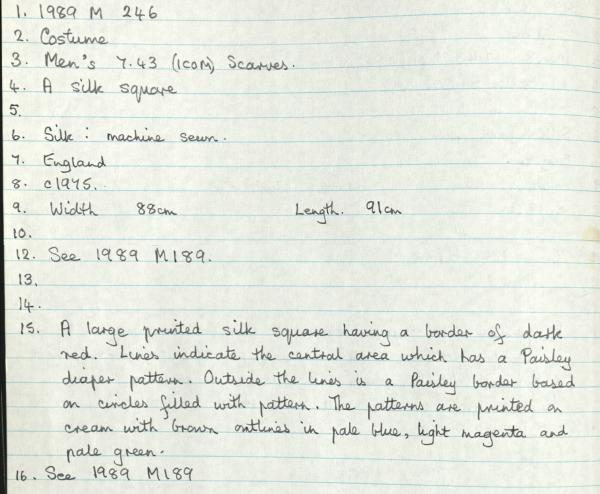 1. 1989 M 246
2. Costume
3. Men's 7.43 (ICOM) Scarves.
4. A silk square
5.
6. Silk : machine sewn.
7. England
8. c1975.
9. Width 88cm Length. 91cm
10.
12. See 1989 M189.
13.
14.
15. A large printed silk square having a border of dark
red. Lines indicate the central area which has a Paisley
diaper pattern. Outside the lines is a Paisley border based
on circles filled with pattern. The patterns are printed on
cream with brown outlines in pale blue, light magenta and
pale green.
16. See 1989 M189